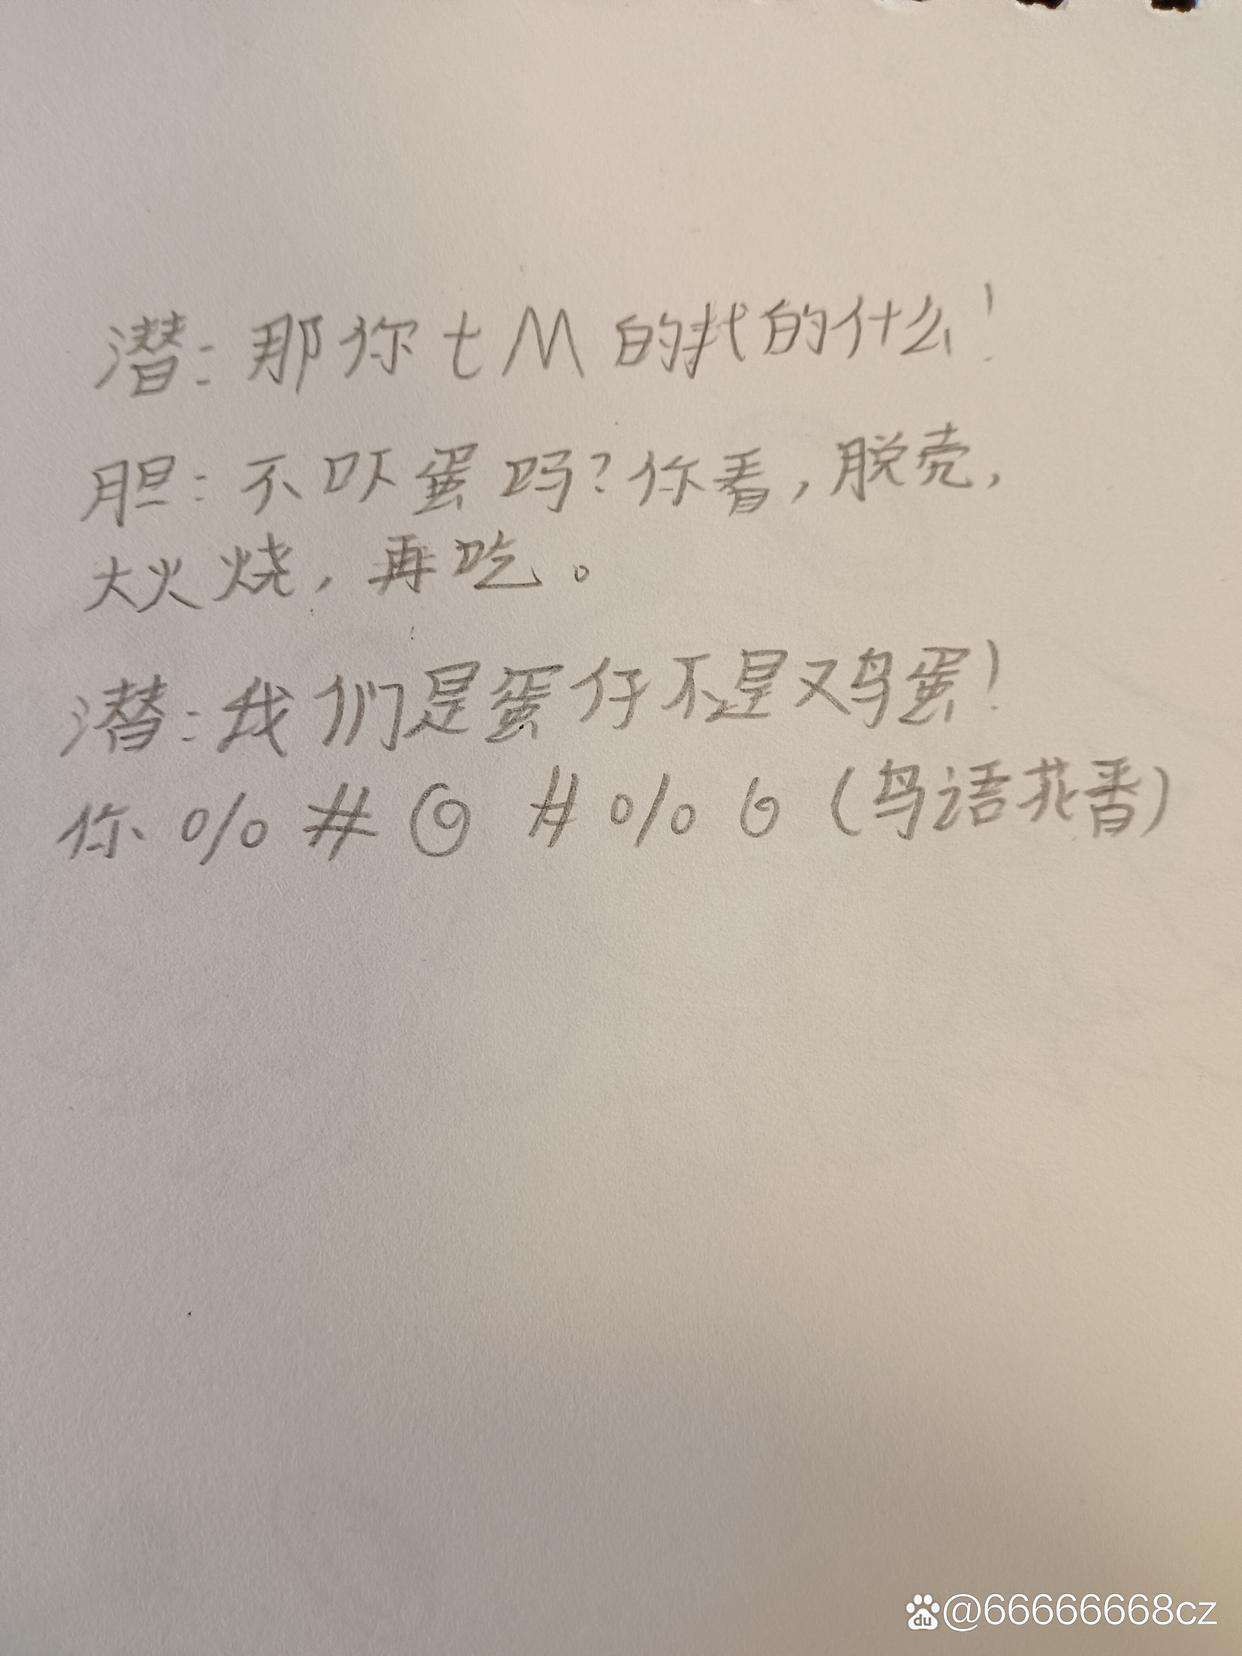 潜：那你tM的找的什么！
胆：不吓蛋吗？你看，脱壳，
大火烧，再吃。
潜：我们是蛋仔不是鸡蛋！
你%#@#%@（鸟语花香）
du@66666668cz